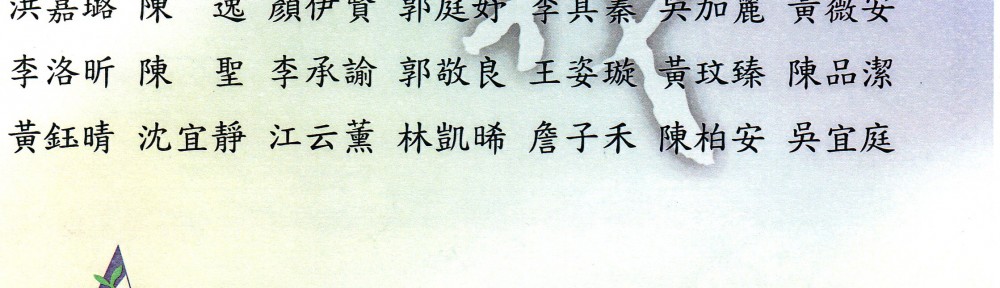 洪嘉璐 陳　逸 顏伊賢 郭庭妤 李其蓁 吳加麗 黃薇安
李洛昕 陳　聖 李承諭 郭敬良 王姿璇 黃玟臻 陳品潔
黃鈺晴 沈宜靜 江云薰 林凱晞 詹子禾 陳柏安 吳宜庭